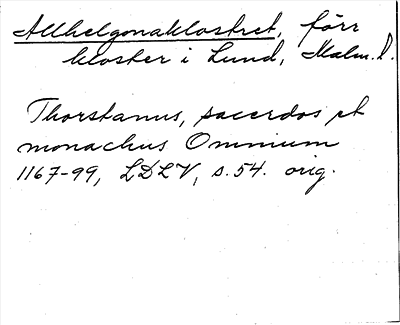 Allhelgonaklostret, förr
kloster i Lund, Malm. l.
Thorstanus, sacerdos et
monachus Omnium
1167-99, LDLV, s. 54. orig.